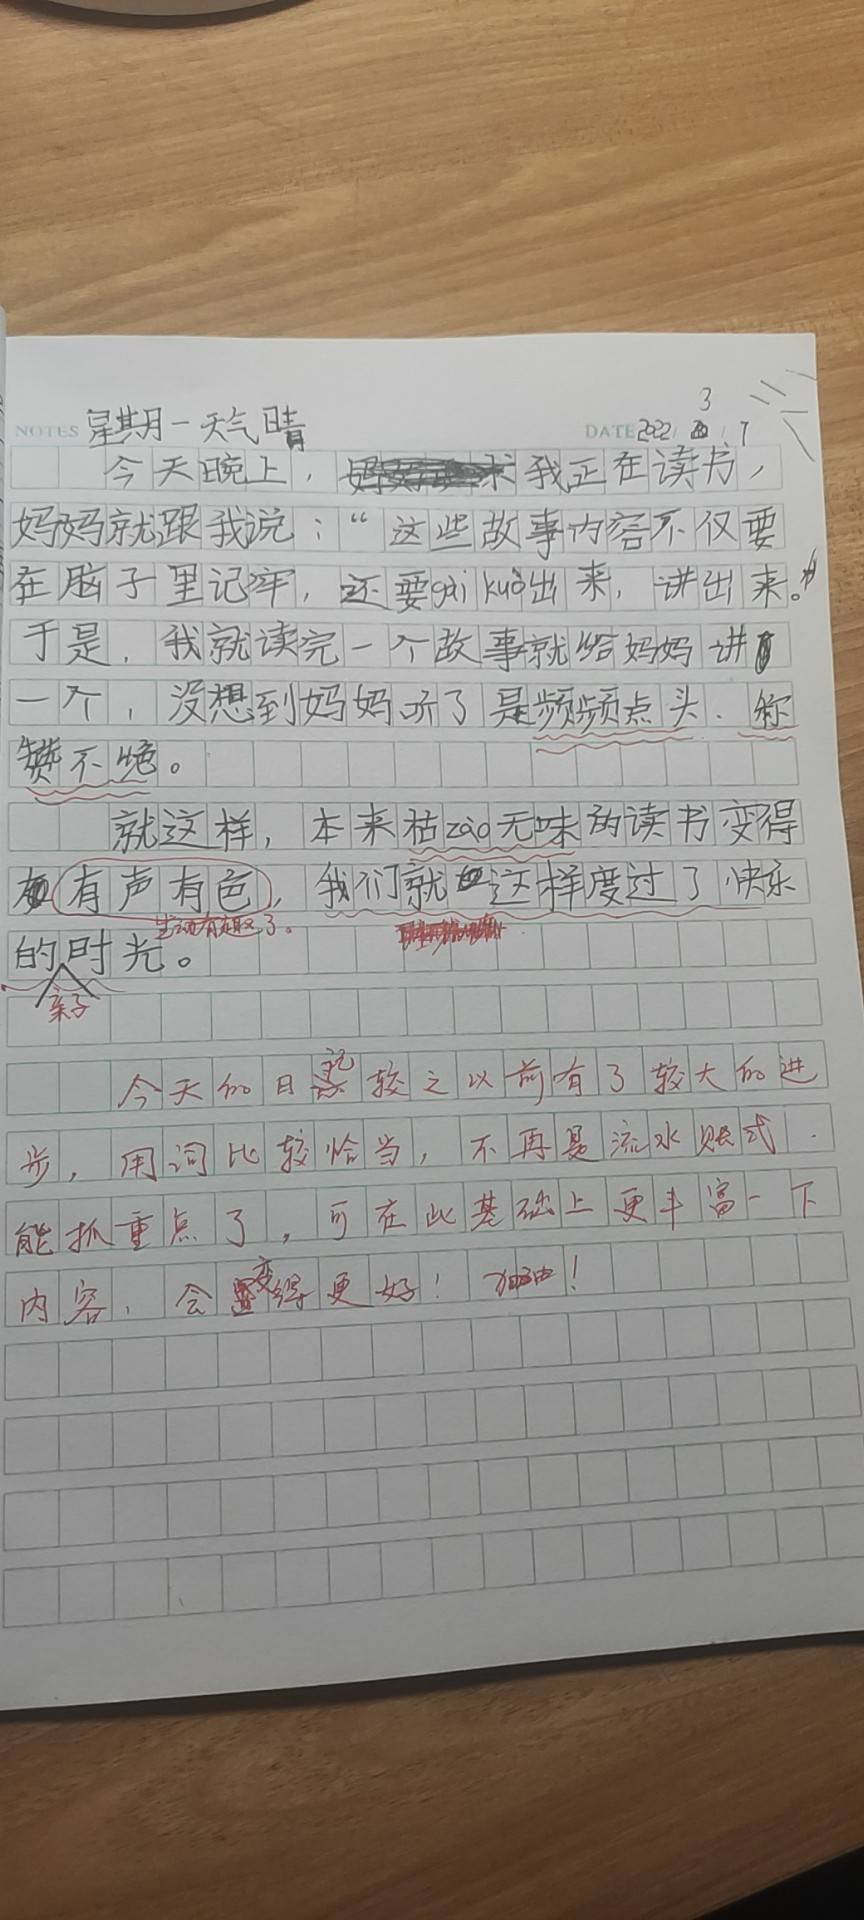 NOTES 星期一天气晴 DATE 2022/3/7
今天晚上，我正在读书，
妈妈就跟我说：“这些故事内容不仅要
在脑子里记牢，还要gài kuò出来，讲出来。”
于是，我就读完一个故事就给妈妈讲
一个，没想到妈妈听了是频频点头．称
赞不绝。
就这样，本来枯zào无味的读书变得
有声有色，我们就这样度过了快乐
生动有趣了。
的时光。
亲子
今天的日记较之以前有了较大的进
步，用词比较恰当，不再是流水账式．
能抓重点了，可在此基础上更丰富一下
内容，会变得更好！加油！